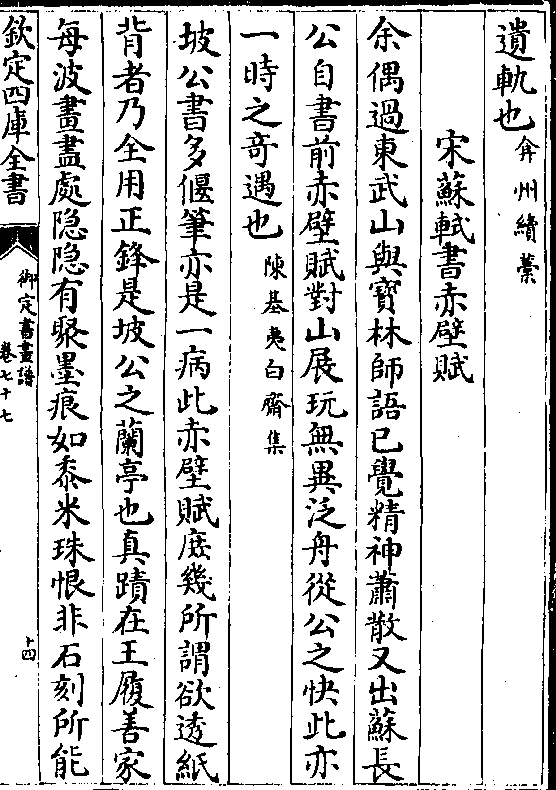 遺軌也弇州續藁
宋蘇軾書赤壁賦
余偶過東武山與寳林師語已覺精神蕭散又出蘇長
公自書前赤壁賦對山展玩無異泛舟從公之快此亦
一時之竒遇也陳基夷白齋集
坡公書多偃筆亦是一病此赤壁賦庶幾所謂欲透紙
背者乃全用正鋒是坡公之蘭亭也真蹟在王履善家
每波畫盡處隐隐有聚墨痕如黍米珠恨非石刻所能
欽定四庫全書
御定書畫譜
卷七十七
十四